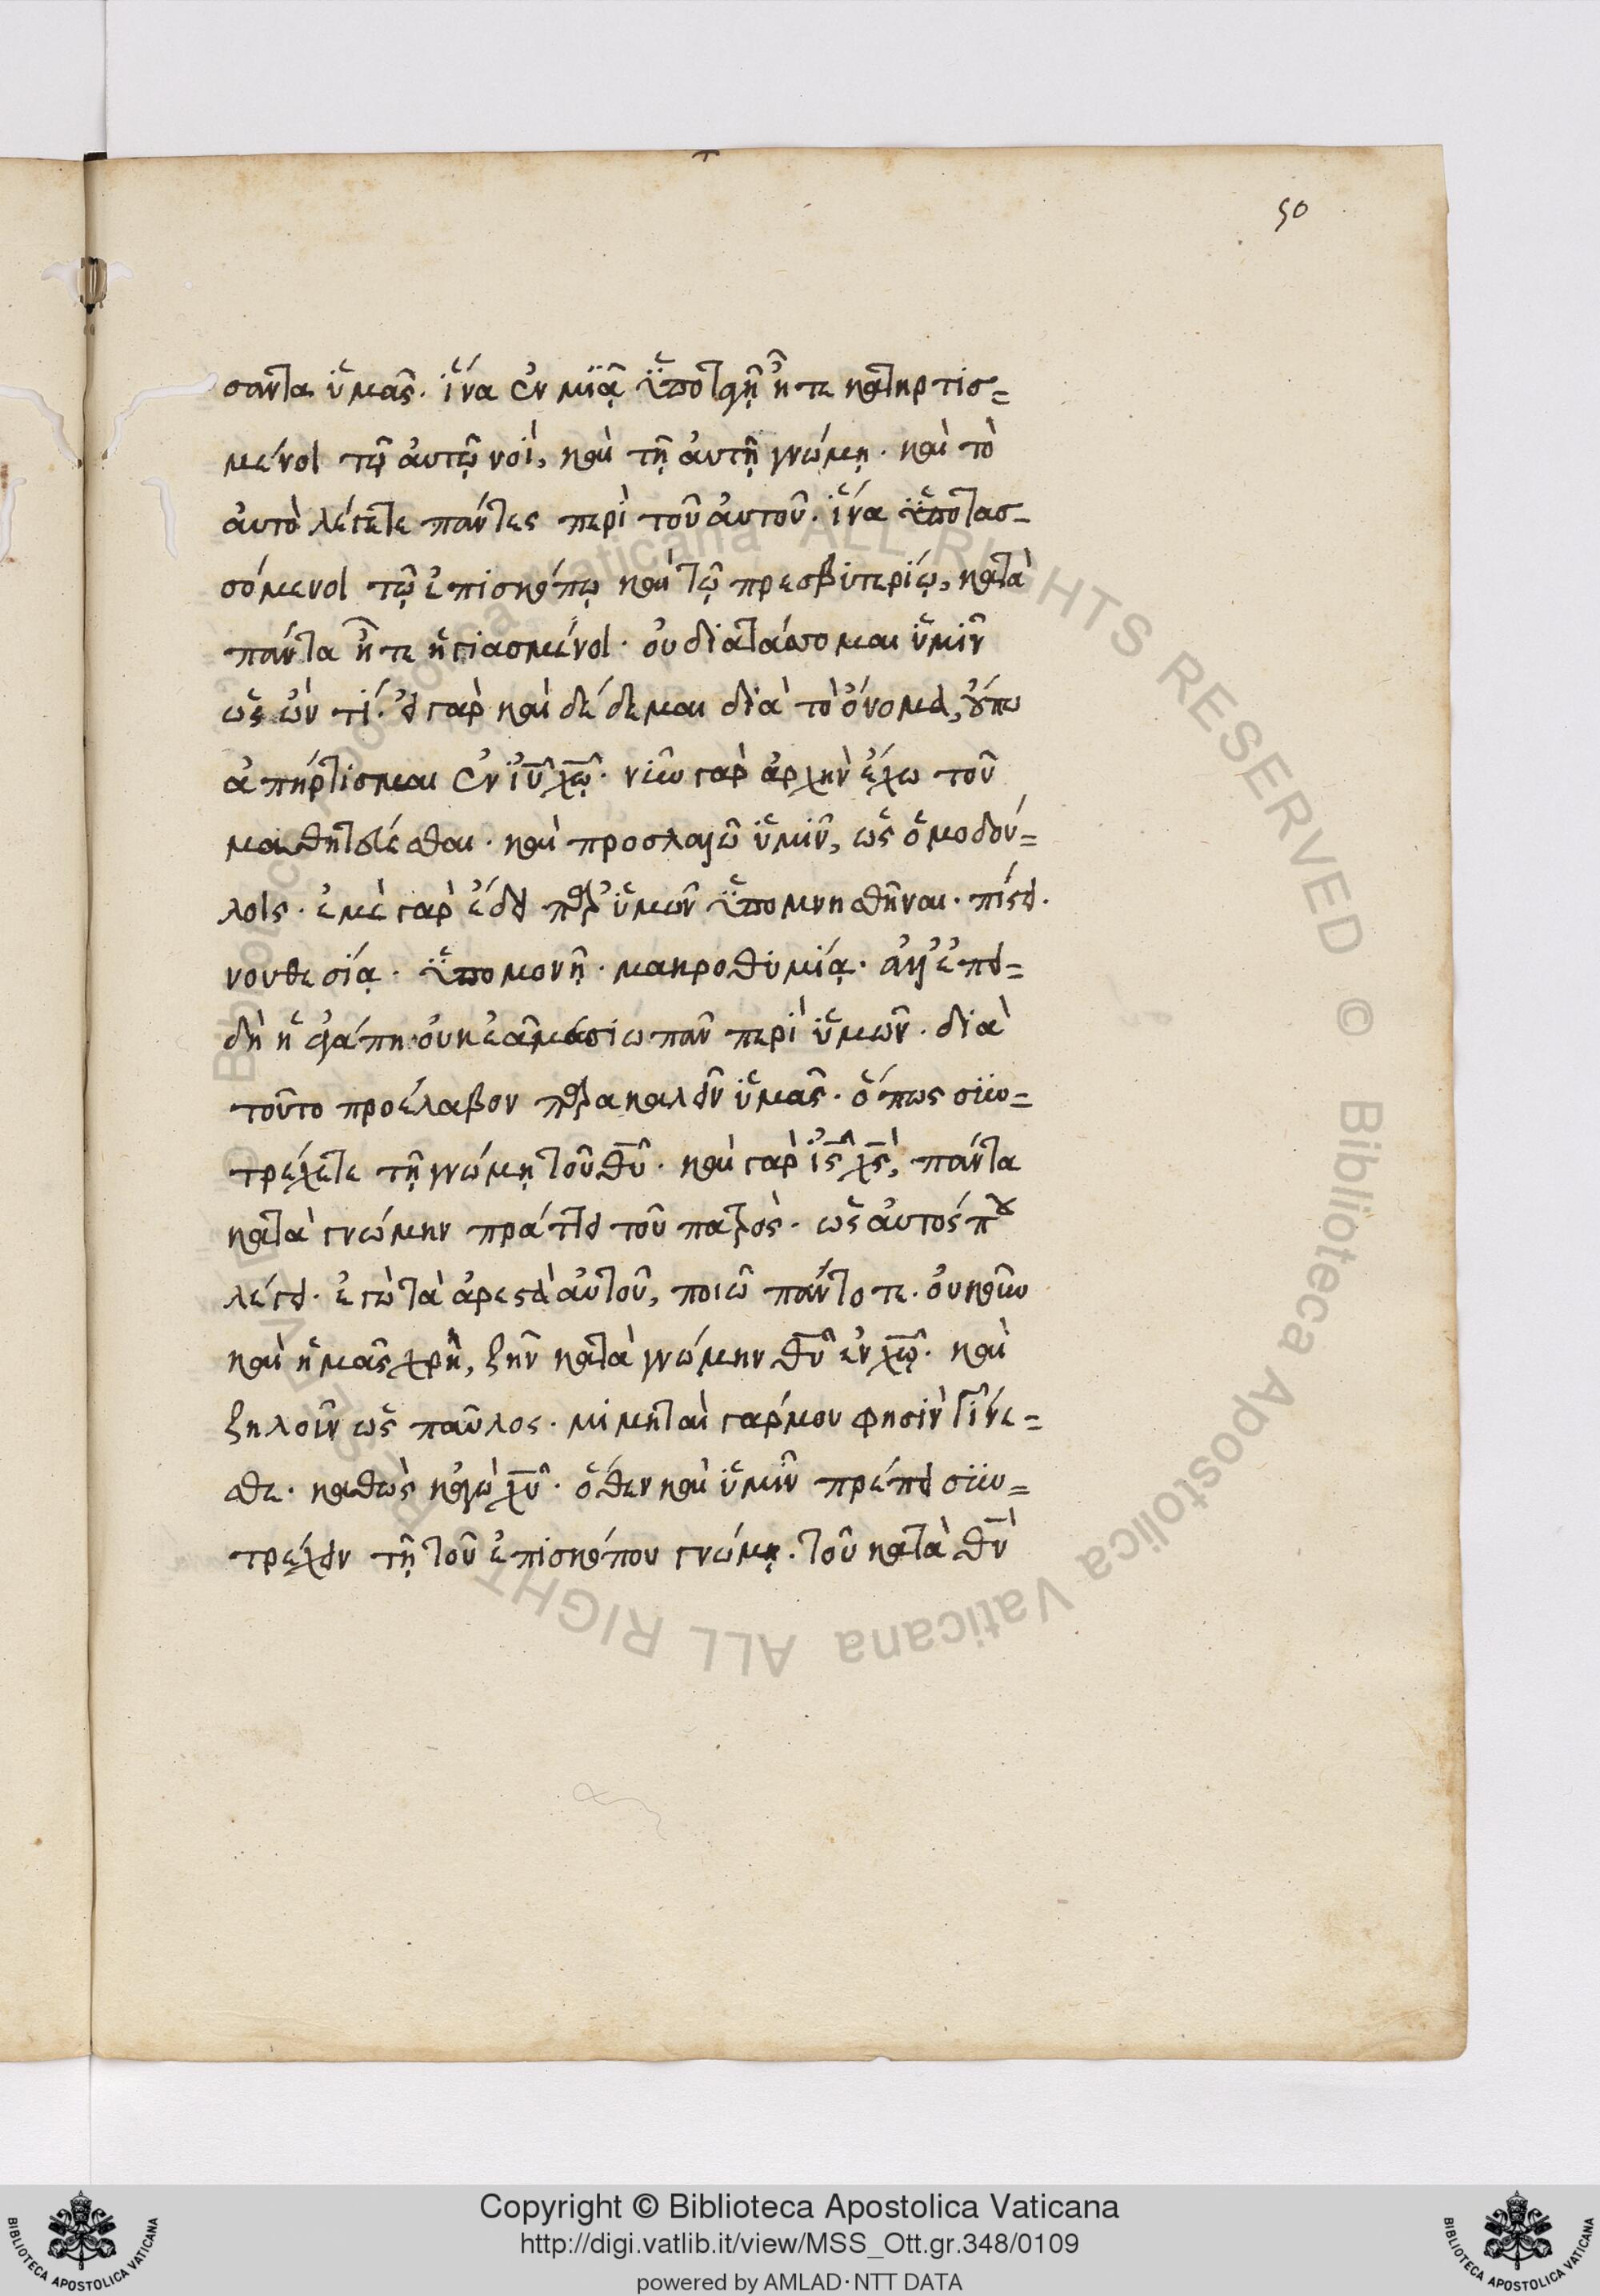 50
σαντα ὑμᾶς. ἵνα ἐν μιᾷ ὑποταγῇ ἦτε κατηρτισ=
μένοι τῷ αὐτῷ νοῒ, καὶ τῇ αὐτῇ γνώμῃ. καὶ τὸ
αὐτὸ λέγετε πάντες περὶ τοῦ αὐτοῦ. ἵνα ὑποτασ-
σόμενοι τῷ ἐπισκόπῳ καὶ τῷ πρεσβιτερίῳ, κατὰ
πάντα ἦτε ἡγιασμένοι. οὐ διατάσσομαι ὑμῖν
ὡς ὤν τί. εἰ γὰρ καὶ δέδεμαι διὰ τὸ ὄνομα, οὔπω
ἀπήρτισμαι ἐν ἰῦ χῶ. νῦν γὰρ ἀρχὴν ἔχω τοῦ
μαθητεύεσθαι. καὶ προσλαλῶ ὑμῖν, ὡς ὁμοδού=
λοις. ἐμὲ γὰρ ἔδει παρ' ὑμῶν ὑπομνησθῆναι. πίστει.
νουθεσίᾳ. ὑπομονῇ. μακροθυμίᾳ. ἀλλ' ἐπει=
δὴ ἡ ἀγάπη οὐκ ἐᾷ με σιωπᾶν περὶ ὑμῶν. διὰ
τοῦτο προέλαβον παρακαλεῖν ὑμᾶς. ὅπως συν=
τρέχετε τῇ γνώμῃ τοῦ θῦ. καὶ γὰρ ἰς χς, πάντα
κατὰ γνώμην πράττει τοῦ πατρὸς. ὡς αὐτός που
λέγει. ἐγὼ τὰ ἀρεστὰ αὐτοῦ, ποιῶ πάντοτε. οὐκοῦν
καὶ ἡμᾶς χρὴ, ζῆν κατὰ γνώμην θῦ ἐν χῶ. καὶ
ζηλοῦν ὡς παῦλος. μιμηταὶ γάρ μου φησὶν γίνε=
σθε. καθὼς κἀγὼ χῦ. ὅθεν καὶ ὑμῖν πρέπει συν=
τρέχειν τῇ τοῦ ἐπισκόπου γνώμῃ. τοῦ κατὰ θν
ALL RIGHTS RESERVED © Biblioteca Apostolica Vaticana ALL RIGHTS RESERVED © Biblioteca Apostolica Vaticana
BIBLIOTECA APOSTOLICA VATICANA
Copyright © Biblioteca Apostolica Vaticana
http://digi.vatlib.it/view/MSS_Ott.gr.348/0109
powered by AMLAD·NTT DATA
BIBLIOTECA APOSTOLICA VATICANA